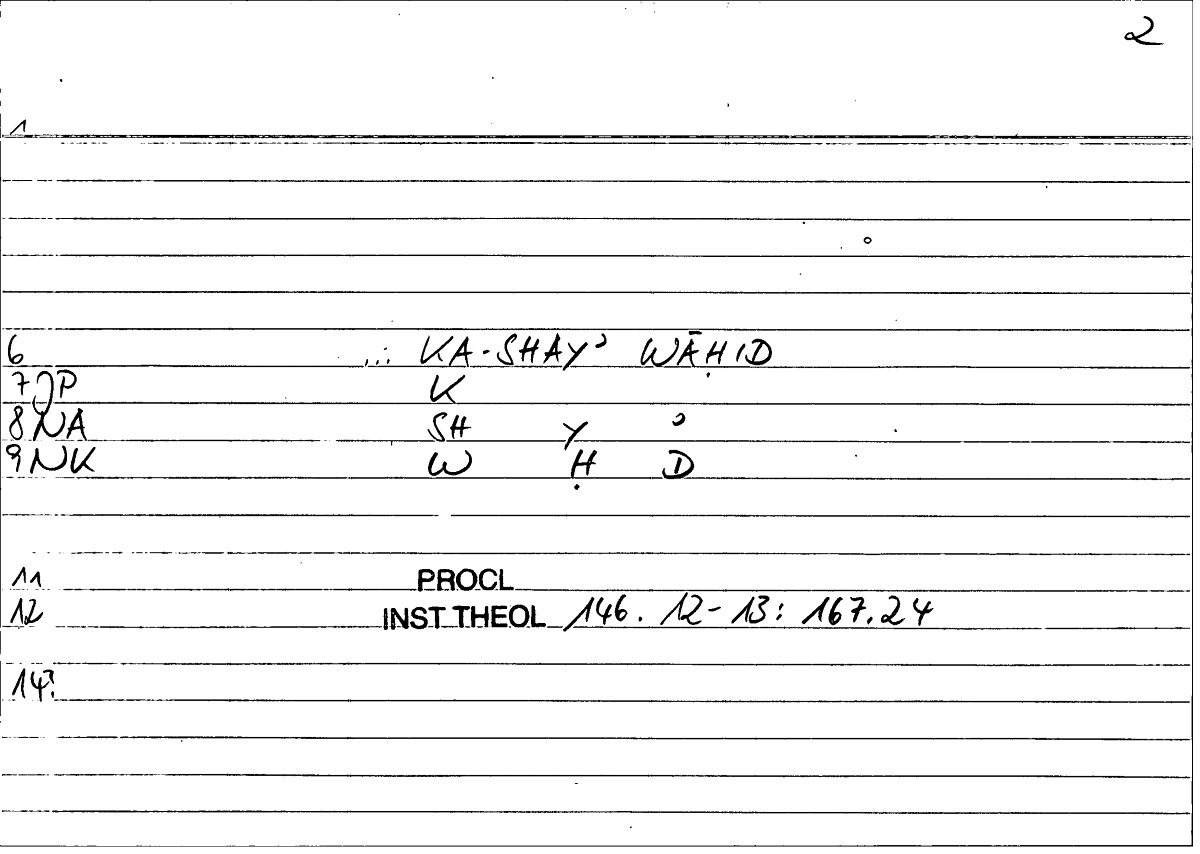 2
1
6 ..: KA-SHAYʾ WĀḤID
7 JP K
8 NA SH Y ʾ
9 NK W Ḥ D
11 PROCL
12 INST THEOL 146. 12-13: 167.24
14?